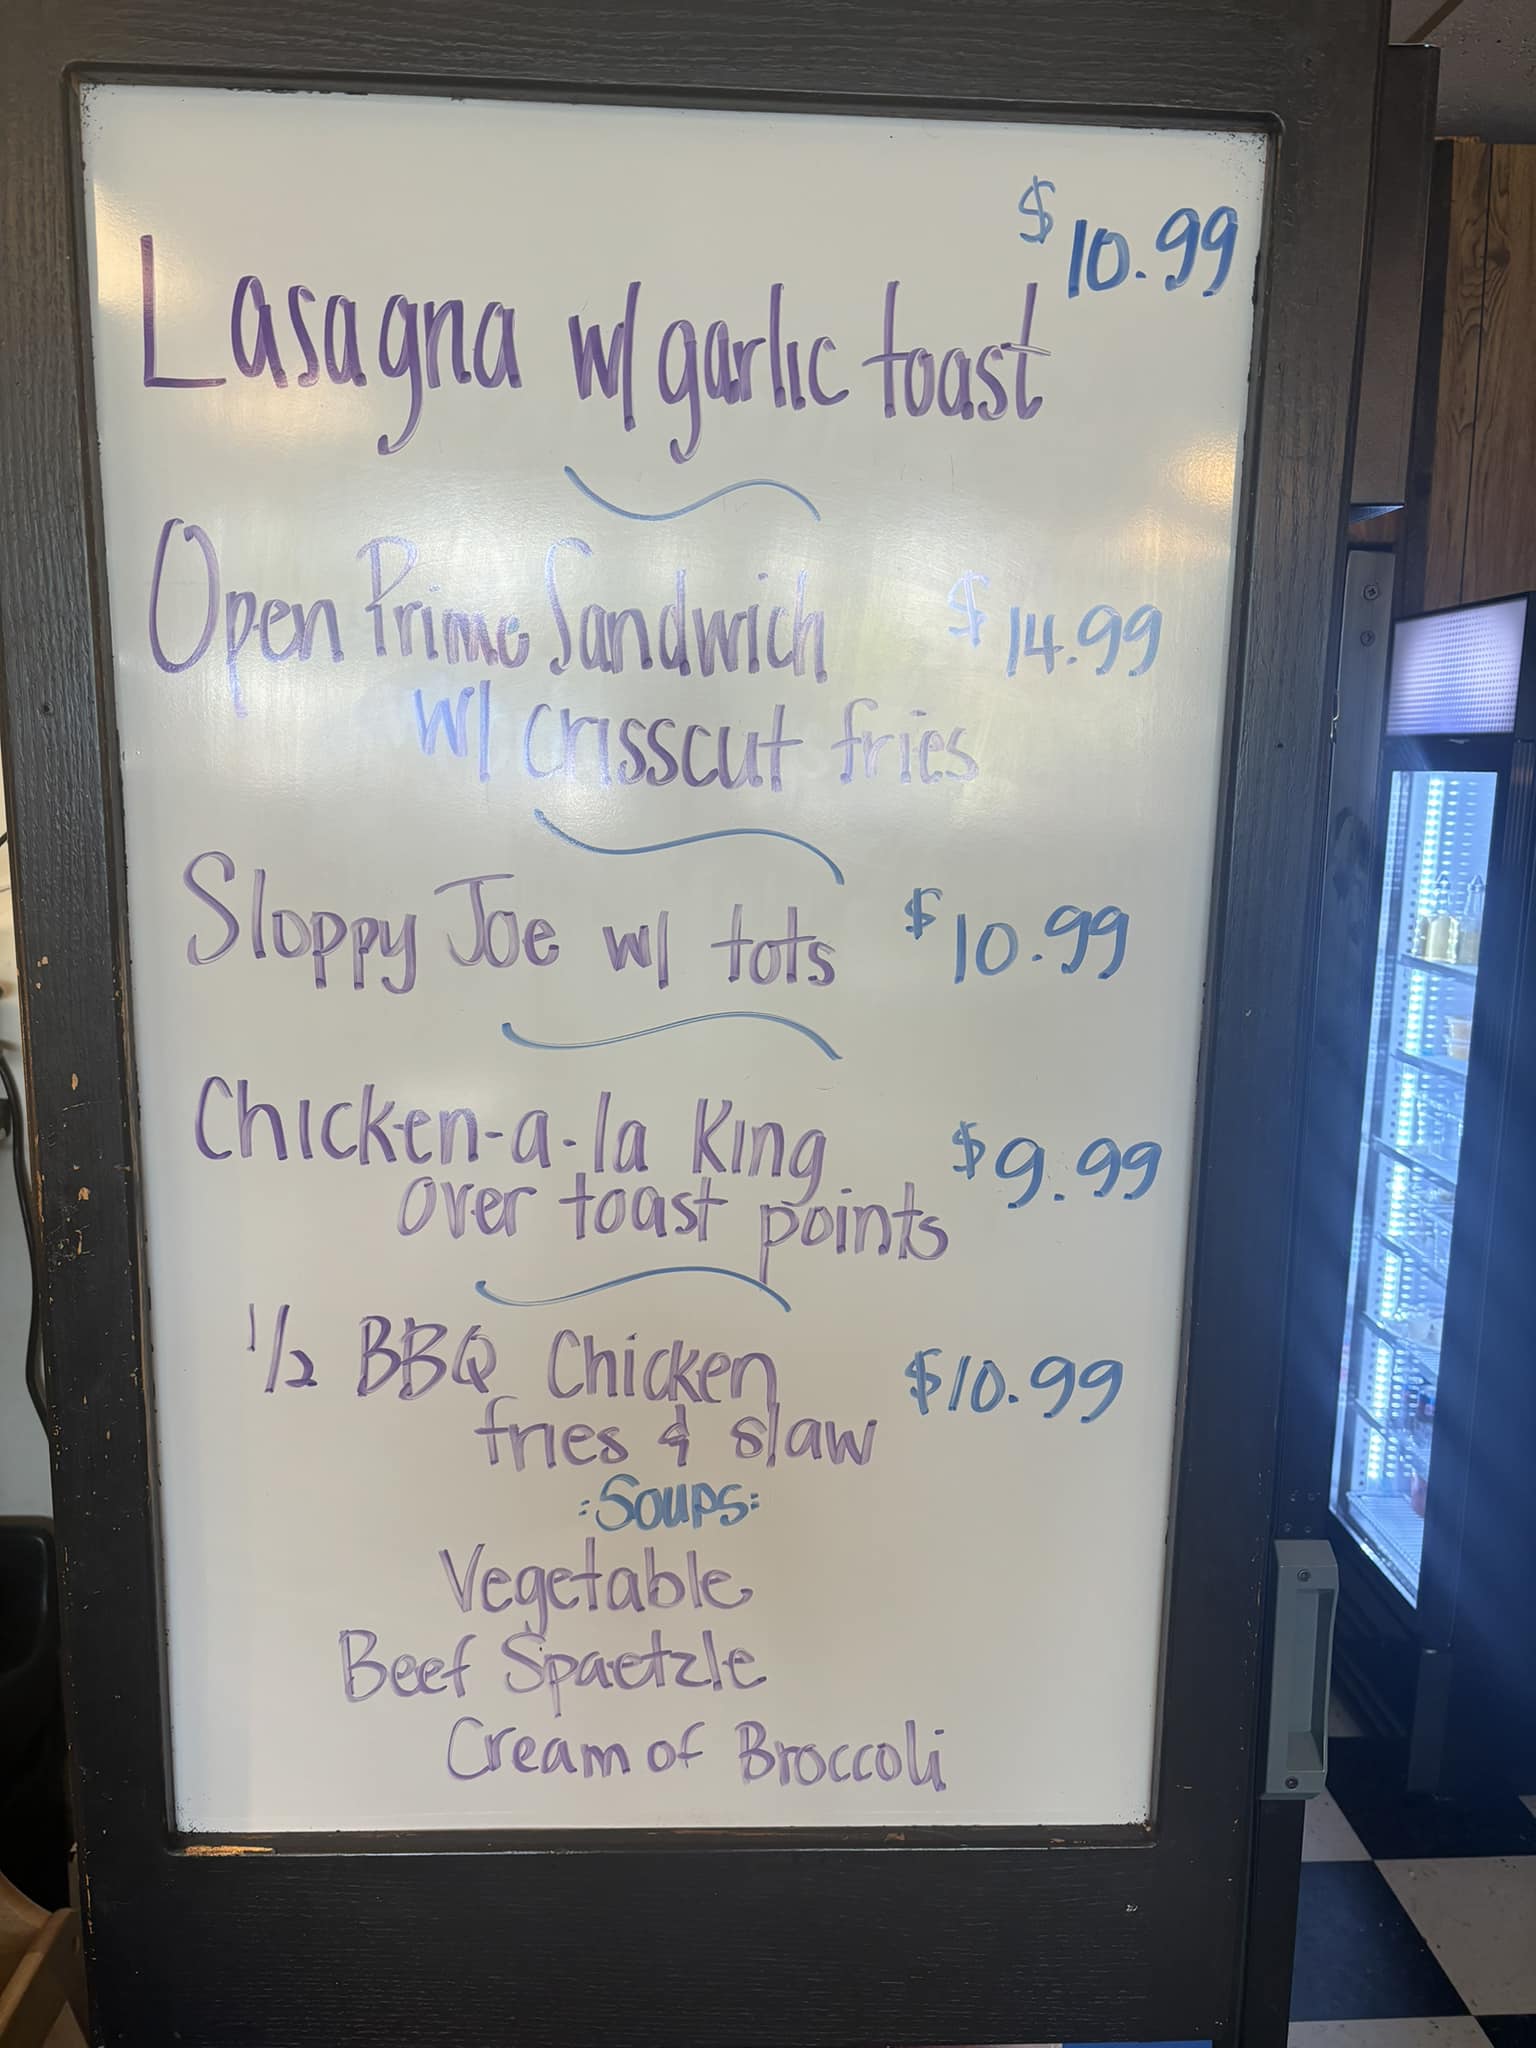 Lasagna w/ garlic toast $10.99
Open Prime Sandwich $14.99
w/ crisscut fries
Sloppy Joe w/ tots $10.99
Chicken-a-la King $9.99
over toast points
1/2 BBQ Chicken $10.99
fries & slaw
:Soups:
Vegetable
Beef Spaetzle
Cream of Broccoli